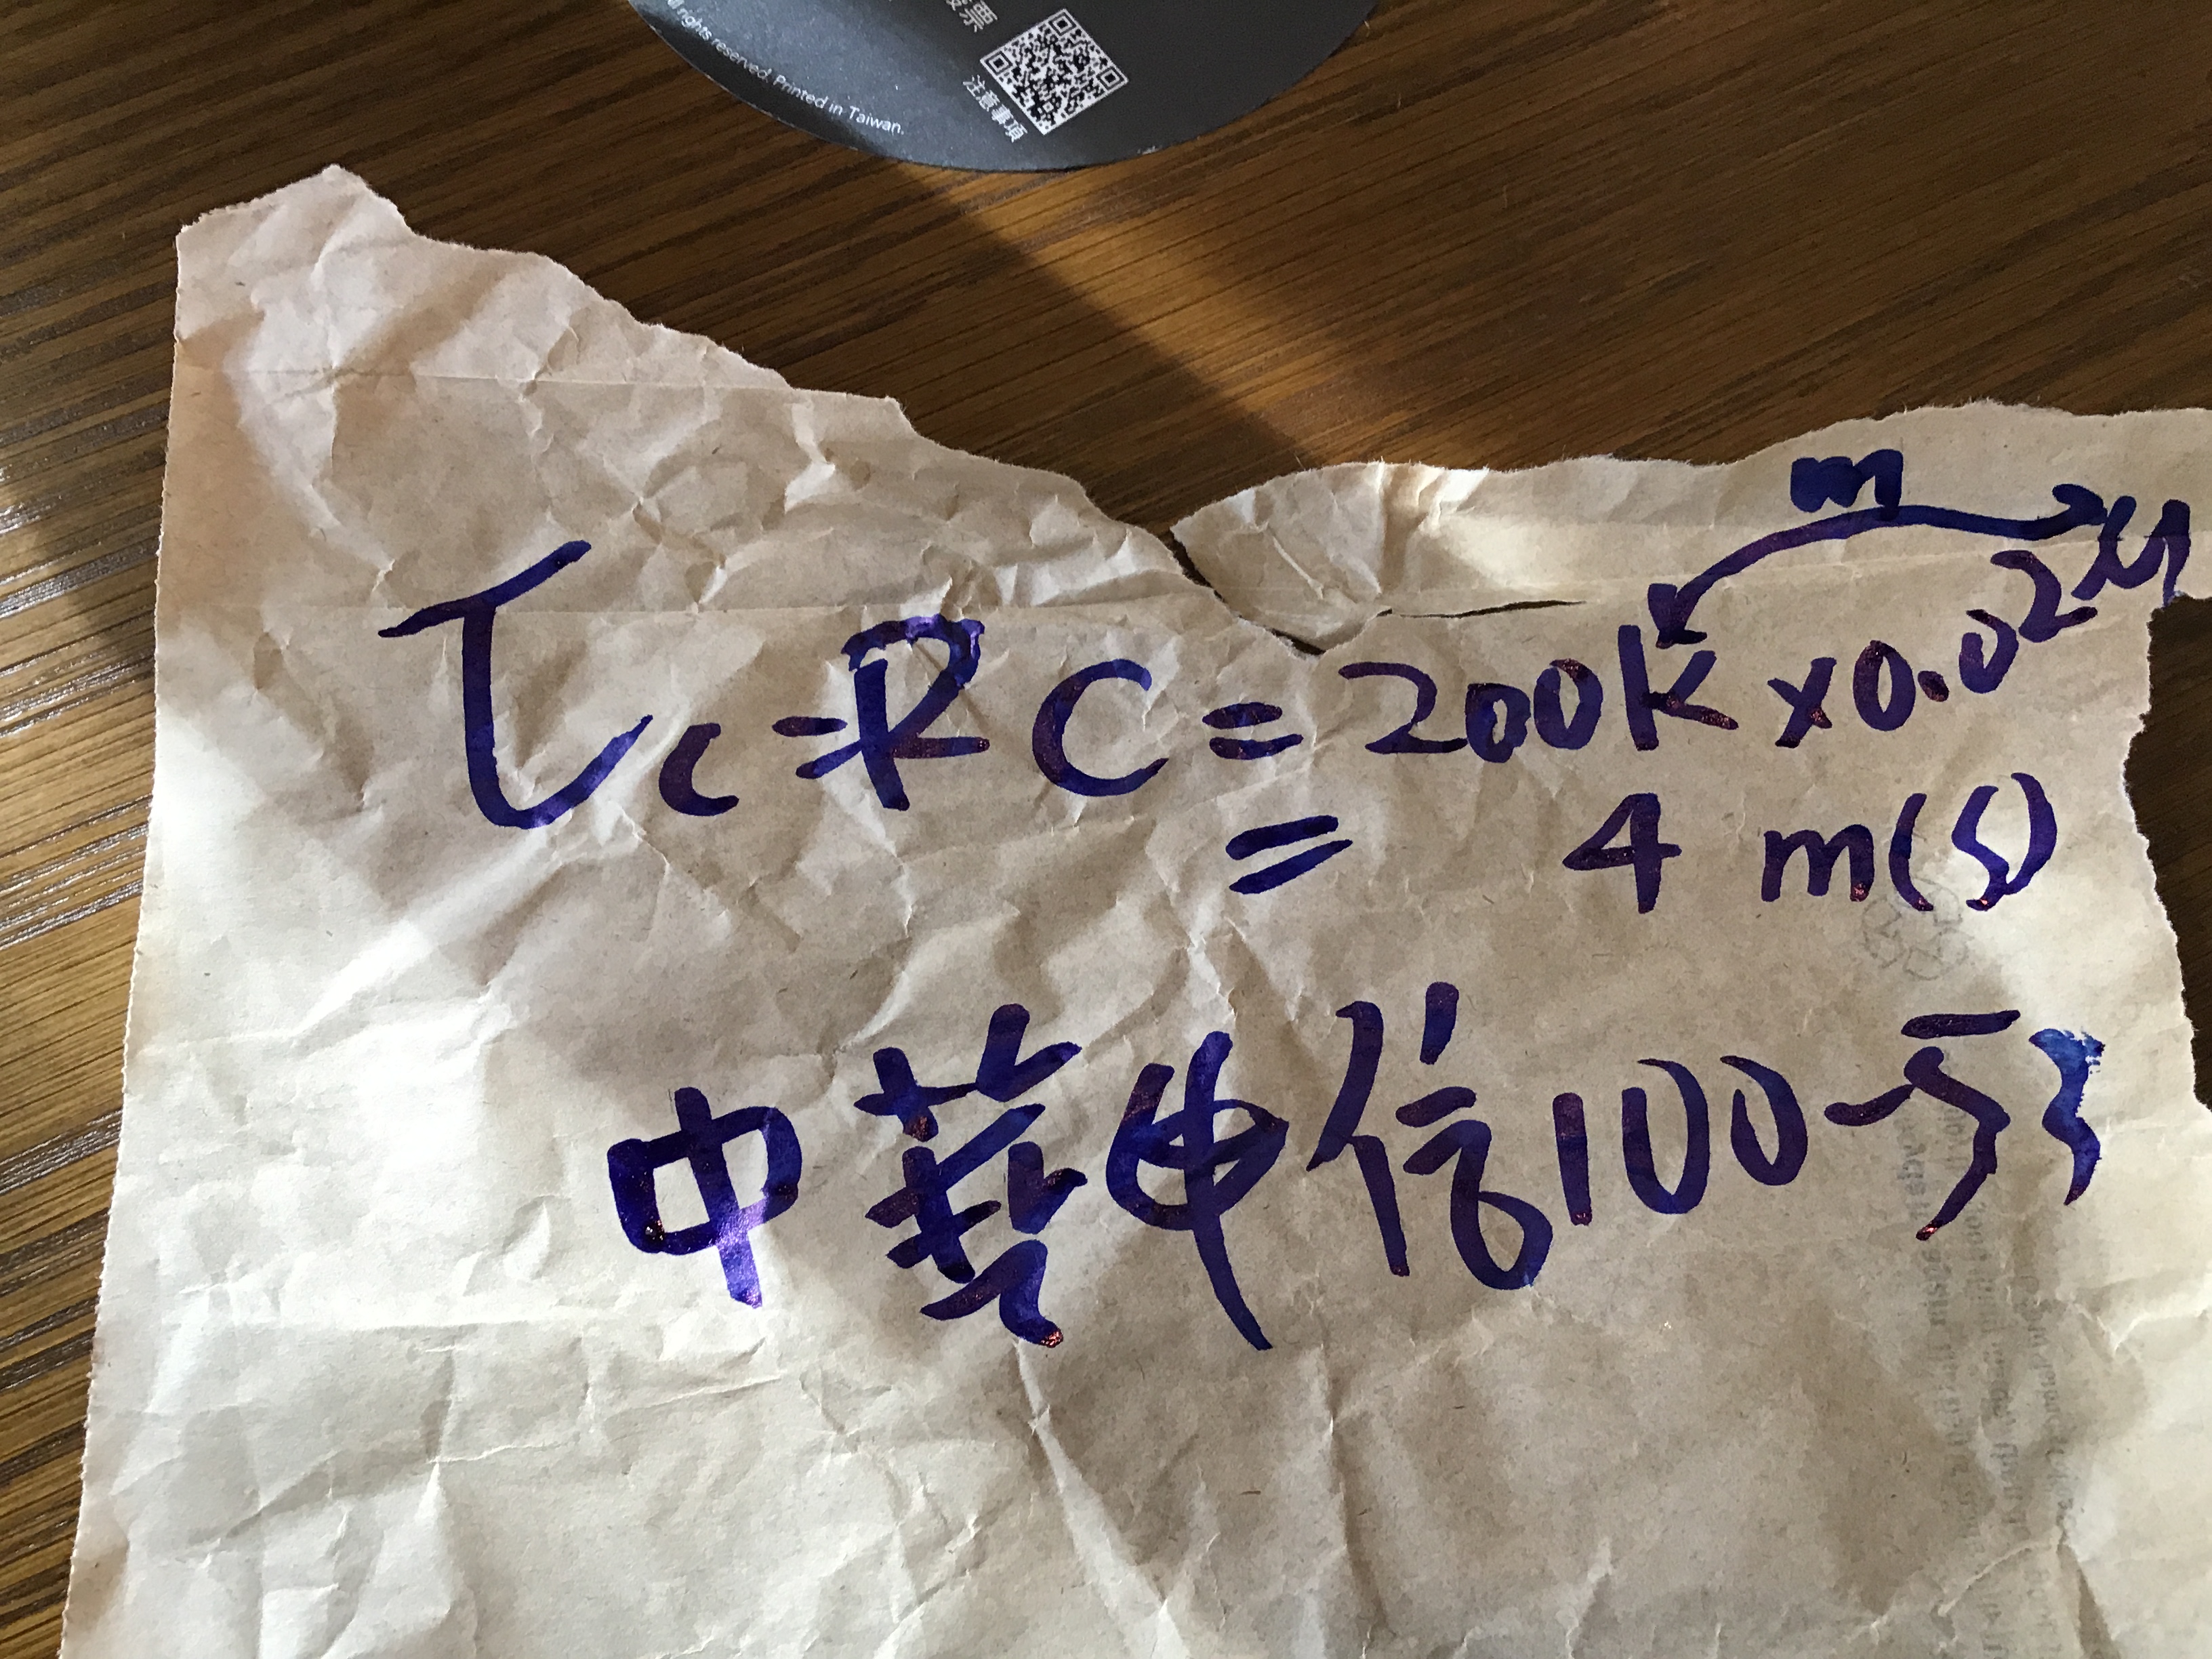 票
注意事項
ll rights reserved. Printed in Taiwan.
m
τc=RC=200k×0.02μ
= 4 m(s)
中華電信100